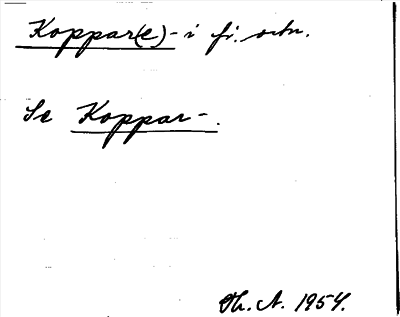 Koppar(e)- i fi. ortn.
Se Koppar-.
Th. A. 1954.